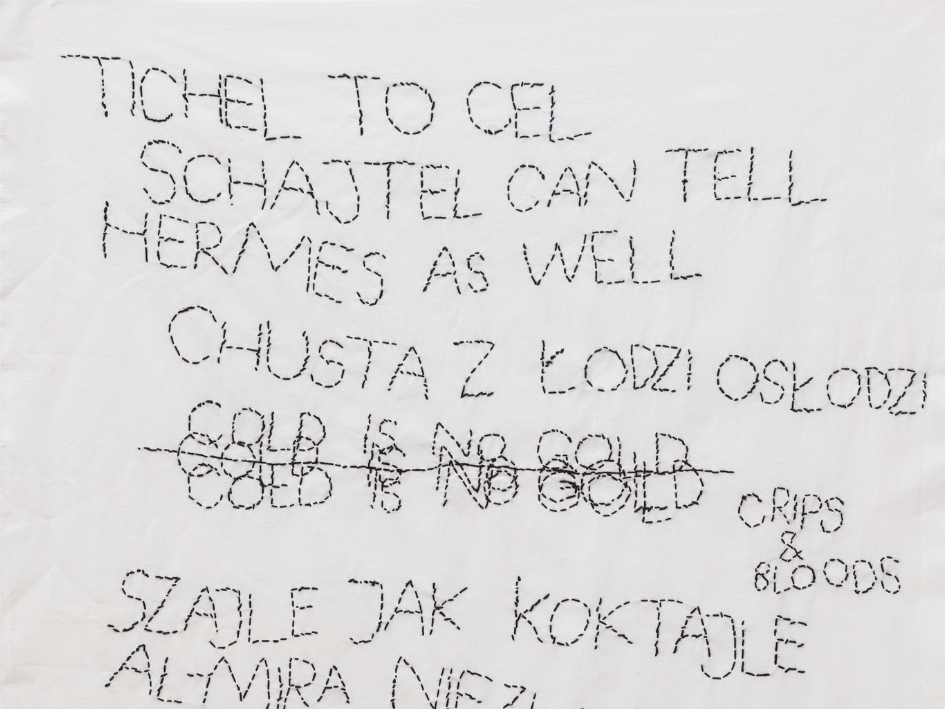 TICHEL TO CEL
SCHAJTEL CAN TELL
HERMES AS WELL
CHUSTA Z ŁODZI OSŁODZI
COLD IS NO GOLD
CRIPS
&
BLOODS
SZAJLE JAK KOKTAJLE
ALMIRA